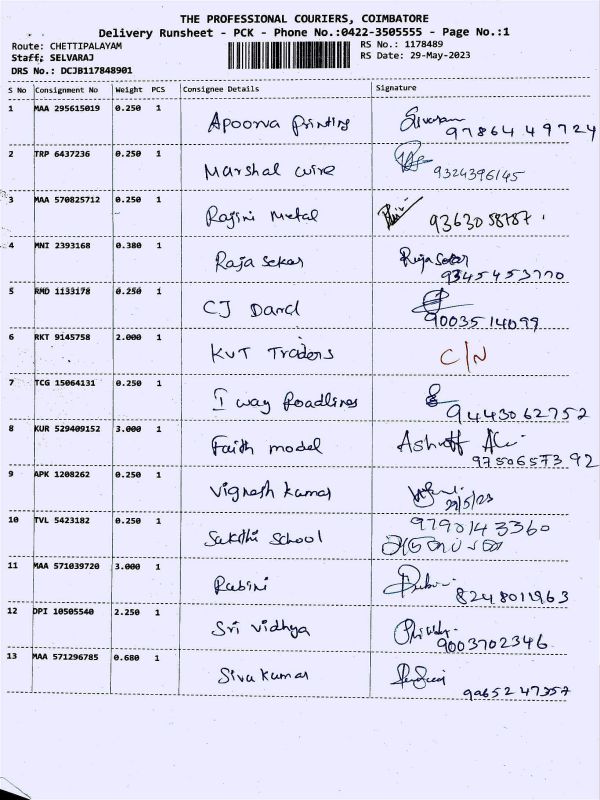 THE PROFESSIONAL COURIERS, COIMBATORE
Delivery Runsheet - PCK - Phone No.:0422-3505555 - Page No.:1
Route: CHETTIPALAYAM
RS No.: 1178489
Staff: SELVARAJ
RS Date: 29-May-2023
DRS No.: DCJB117848901
S No Consignment No Weight PCS Consignee Details Signature
1 MAA 295615019 0.250 1 Apoorva Printing
97864 49724
2 TRP 6437236 0.250 1 Marshal wire
9324396145
3 MAA 570825712 0.250 1 Rajini Metal
9363058787.
4 MNI 2393168 0.380 1 Raja sekar Raja Sekar
9345453770
5 RMD 1133178 0.250 1 CJ Darcl
9003514099
6 RKT 9145758 2.000 1 KVT Traders C/N
7 TCG 15064131 0.250 1 I way Roadlines
9443062752
8 KUR 529409152 3.000 1 Faith model Ashroff Ali
9750657392
9 APK 1208262 0.250 1 Vignesh Kumar
29/5/23
10 TVL 5423182 0.250 1 Sakthi School 9790143360
11 MAA 571039720 3.000 1 Rubini
8248011963
12 DPI 10505540 2.250 1 Sri Vidhya
9003702346
13 MAA 571296785 0.680 1 Siva Kumar
9965247357